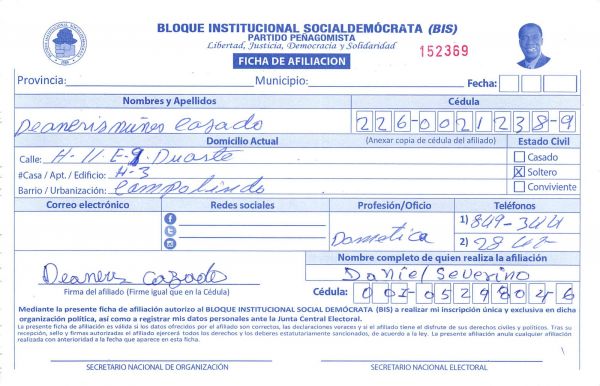 BLOQUE INSTITUCIONAL SOCIALDEMÓCRATA (BIS)
PARTIDO PEÑAGOMISTA
Libertad, Justicia, Democracia y Solidaridad
152369
FICHA DE AFILIACION
Provincia: Municipio: Fecha:
Nombres y Apellidos Cédula
Deaneris Núñes Casado 226-0021238-9
Domicilio Actual (Anexar copia de cédula del afiliado) Estado Civil
Calle: H-11 E-9 Duarte Casado
#Casa / Apt. / Edificio: H-3 X Soltero
Barrio / Urbanización: Campolindo Conviviente
Correo electrónico Redes sociales Profesión/Oficio Teléfonos
1) 849-344
Domestica 2) 28
Nombre completo de quien realiza la afiliación
Deaneris Casado Daniel Severino
Firma del afiliado (Firme igual que en la Cédula) Cédula: 001-0529804-6
Mediante la presente ficha de afiliación autorizo al BLOQUE INSTITUCIONAL SOCIAL DEMÓCRATA (BIS) a realizar mi inscripción única y exclusiva en dicha
organización política, así como a registrar mis datos personales ante la Junta Central Electoral.
La presente ficha de afiliación es válida si los datos ofrecidos por el afiliado son correctos, las declaraciones veraces y si el afiliado tiene el disfrute de sus derechos civiles y políticos. Tras su
recepción, sello y firmas autorizadas el afiliado ejercerá todos los derechos y los deberes estatutariamente sancionados, de acuerdo a la ley. La presente afiliación anula cualquier afiliación
realizada con anterioridad a la fecha que aparece en esta ficha.
SECRETARIO NACIONAL DE ORGANIZACIÓN SECRETARIO NACIONAL ELECTORAL